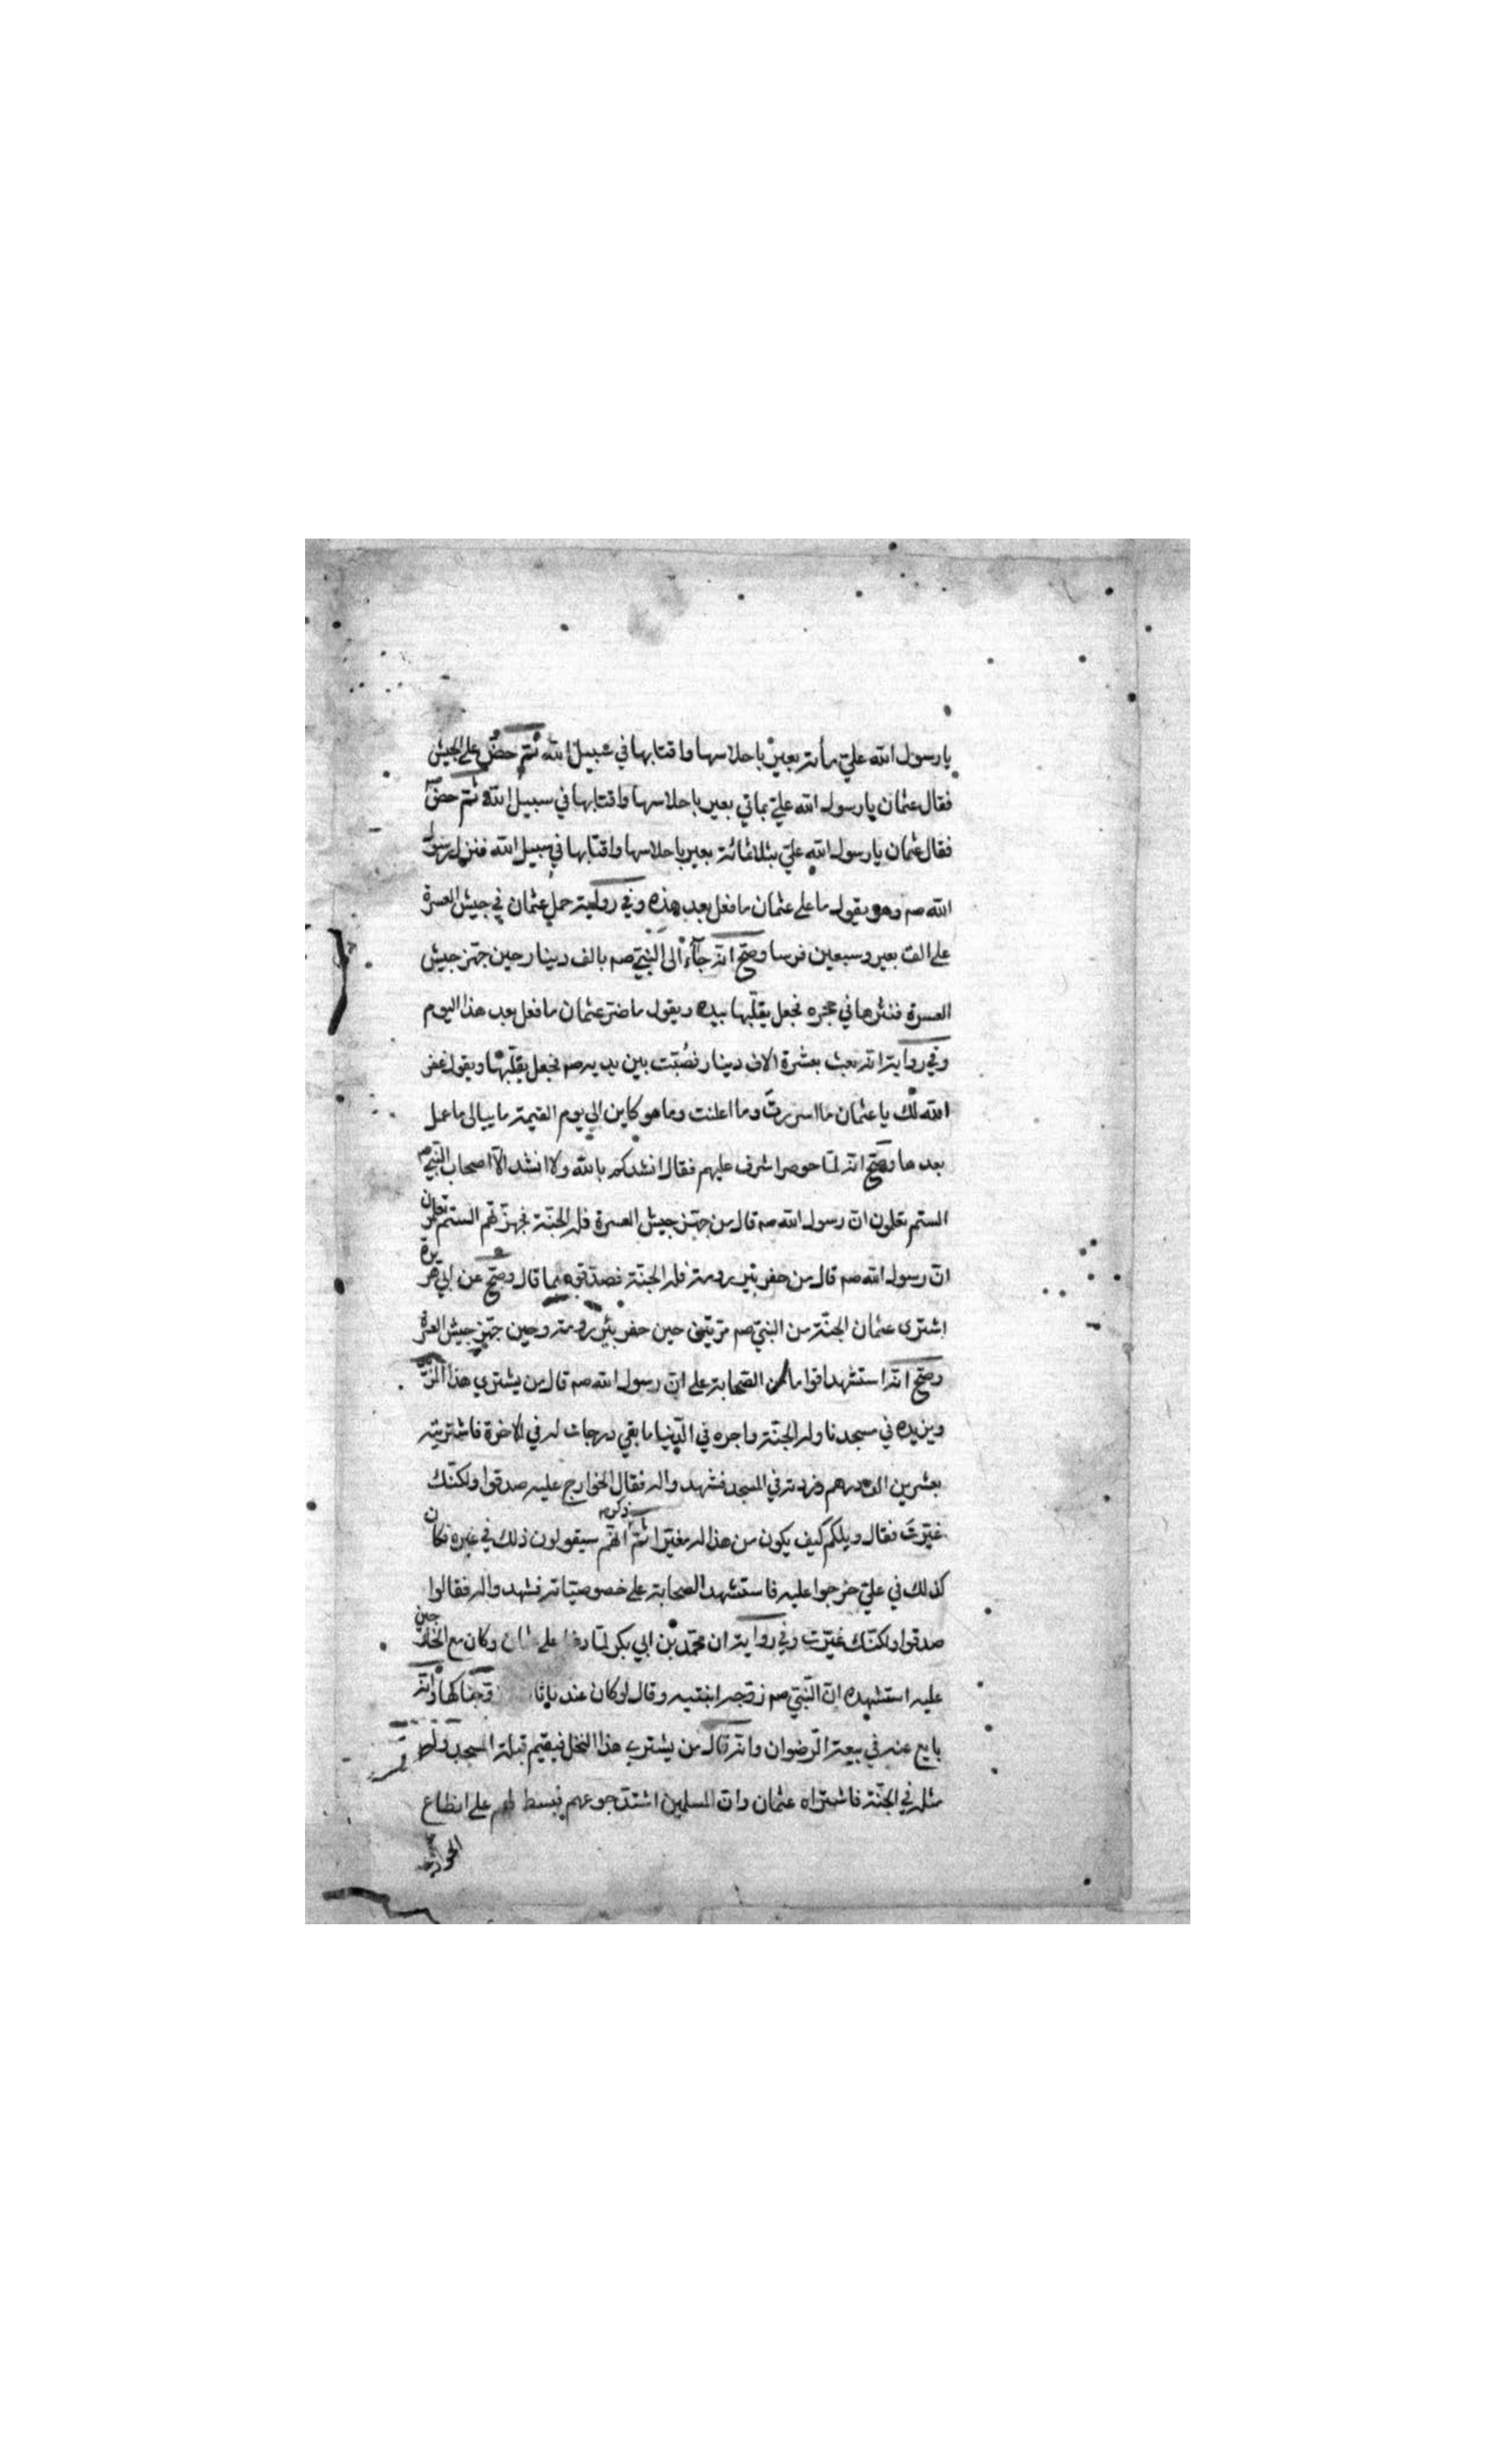 يا رسول الله علي مأته بعير باحلاسها واقتابها في سبيل الله ثم حض على الجيش
فقال عثمان يا رسول الله علي بماتي بعير باحلاسها واقتابها في سبيل الله ثم حض
فقال عثمان يا رسول الله علي بثلاثمائة بعير باحلاسها واقتابها في سبيل الله فنزل رسول
الله صم وهو يقول ما على عثمان ما فعل بعد هذه وفي رواية حمل عثمان في جيش العسرة
على الف بعير وسبعين فرسا وصح انه جآء الى النبي صم بالف دينار حين جهز جيش
العسرة فنثرها في حجره فجعل يقلبها بيده ويقول ما ضر عثمان ما فعل بعد هذا اليوم
وفي رواية انه بعث بعشرة الاف دينار فصُبّت بين يديه صم فجعل يقلبها ويقول غفر
الله لك يا عثمان ما اسررتَ وما اعلنت وما هو كاين الى يوم القيمة ما يبالى ما عمل
بعدها وصح انه لما حوصر اشرف عليهم فقال انشدكم بالله ولا انشد الا اصحاب النبي صم
الستم تعلمون ان رسول الله صم قال من جهز جيش العسرة فله الجنة فجهزتهم الستم تعلمون
ان رسول الله صم قال من حفر بئر رومة فله الجنة فصدقوه بما قال وصح عن ابي هريرة
اشترى عثمان الجنة من النبي صم مرتين حين حفر بئر رومة وحين جهز جيش العسرة
وصح انه استشهد اقواما من الصحابة على ان رسول الله صم قال من يشتري هذا
ويزيده في مسجدنا وله الجنة واجره في الدنيا ما بقي درجات له في الاخرة فاشتريته
بعشرين الف درهم وزدته في المسجد فشهدوا له فقال الخوارج عليه صدقوا ولكنك
غيّرتَ فقال ويلكم كيف يكون من هذا له مغيرا ثم ذكر انهم سيقولون ذلك في غيره فكان
كذلك في علي خرجوا عليه فاستشهد الصحابة على خصوصياته فشهدوا له فقالوا
صدقوا ولكنك غيّرت وفي رواية ان محمد بن ابي بكر لما دخل على عثمان وكان مع الخارجين
عليه استشهده ان النبي صم زوجه ابنتيه وقال لو كان عندنا وانه
بايع عنه في بيعة الرضوان وانه قال من يشتري هذا النخل فيقيم قبلة المسجد وله
مثله في الجنة فاشتراه عثمان وان المسلمين اشتد جوعهم فبسط لهم على انطاع